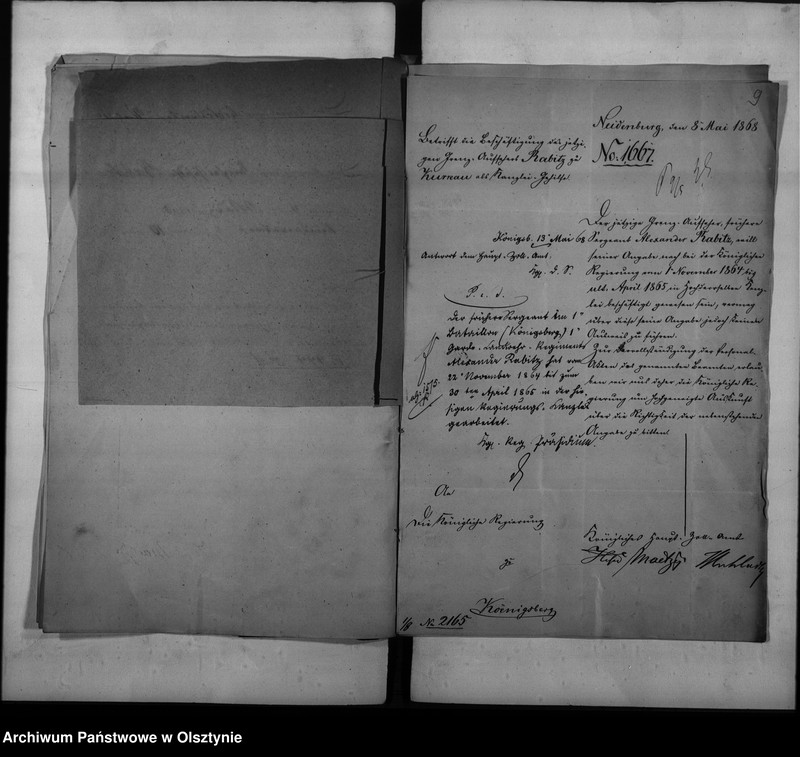 9
Neidenburg, den 8 Mai 1868
No. 1667.
Betrifft die Beschäftigung des jetzi-
gen Grenz-Aufsehers Rabitz zu
als Kanzlei-Gehilfe
Königsb. 13 Mai 68
Antwort dem Haupt-Zoll-Amt.
Kgl. d. S.
P. c. d.
Der frühere Sergeant im 1
Bataillon (Königsberg) 1
Garde-Landwehr-Regiments
Alexander Rabitz hat vom
22 November 1864 bis zum
30 ten April 1865 in der hie-
sigen Regierungs-Kanzlei
gearbeitet.
Kgl. Reg. Präsidium.
An
Die Königliche Regierung
zu
Königsberg
No 2165
Der jetzige Grenz-Aufseher, frühere
Sergeant Alexander Rabitz, will
seiner Angabe nach bei der Königlichen
Regierung vom November 1864 bis
ult. April 1865, in Hochderselben Kanz-
lei beschäftigt gewesen sein, vermag
über diese seine Angabe jedoch keinen
Ausweis zu führen.
Zur Vervollständigung der Personal-
Akten des genannten Beamten, erlau-
ben wir uns daher die Königliche Re-
gierung um hochgeneigte Auskunft
über die Richtigkeit der nebenstehenden
Angabe zu bitten.
Königliches Haupt-Zoll-Amt
Archiwum Państwowe w Olsztynie